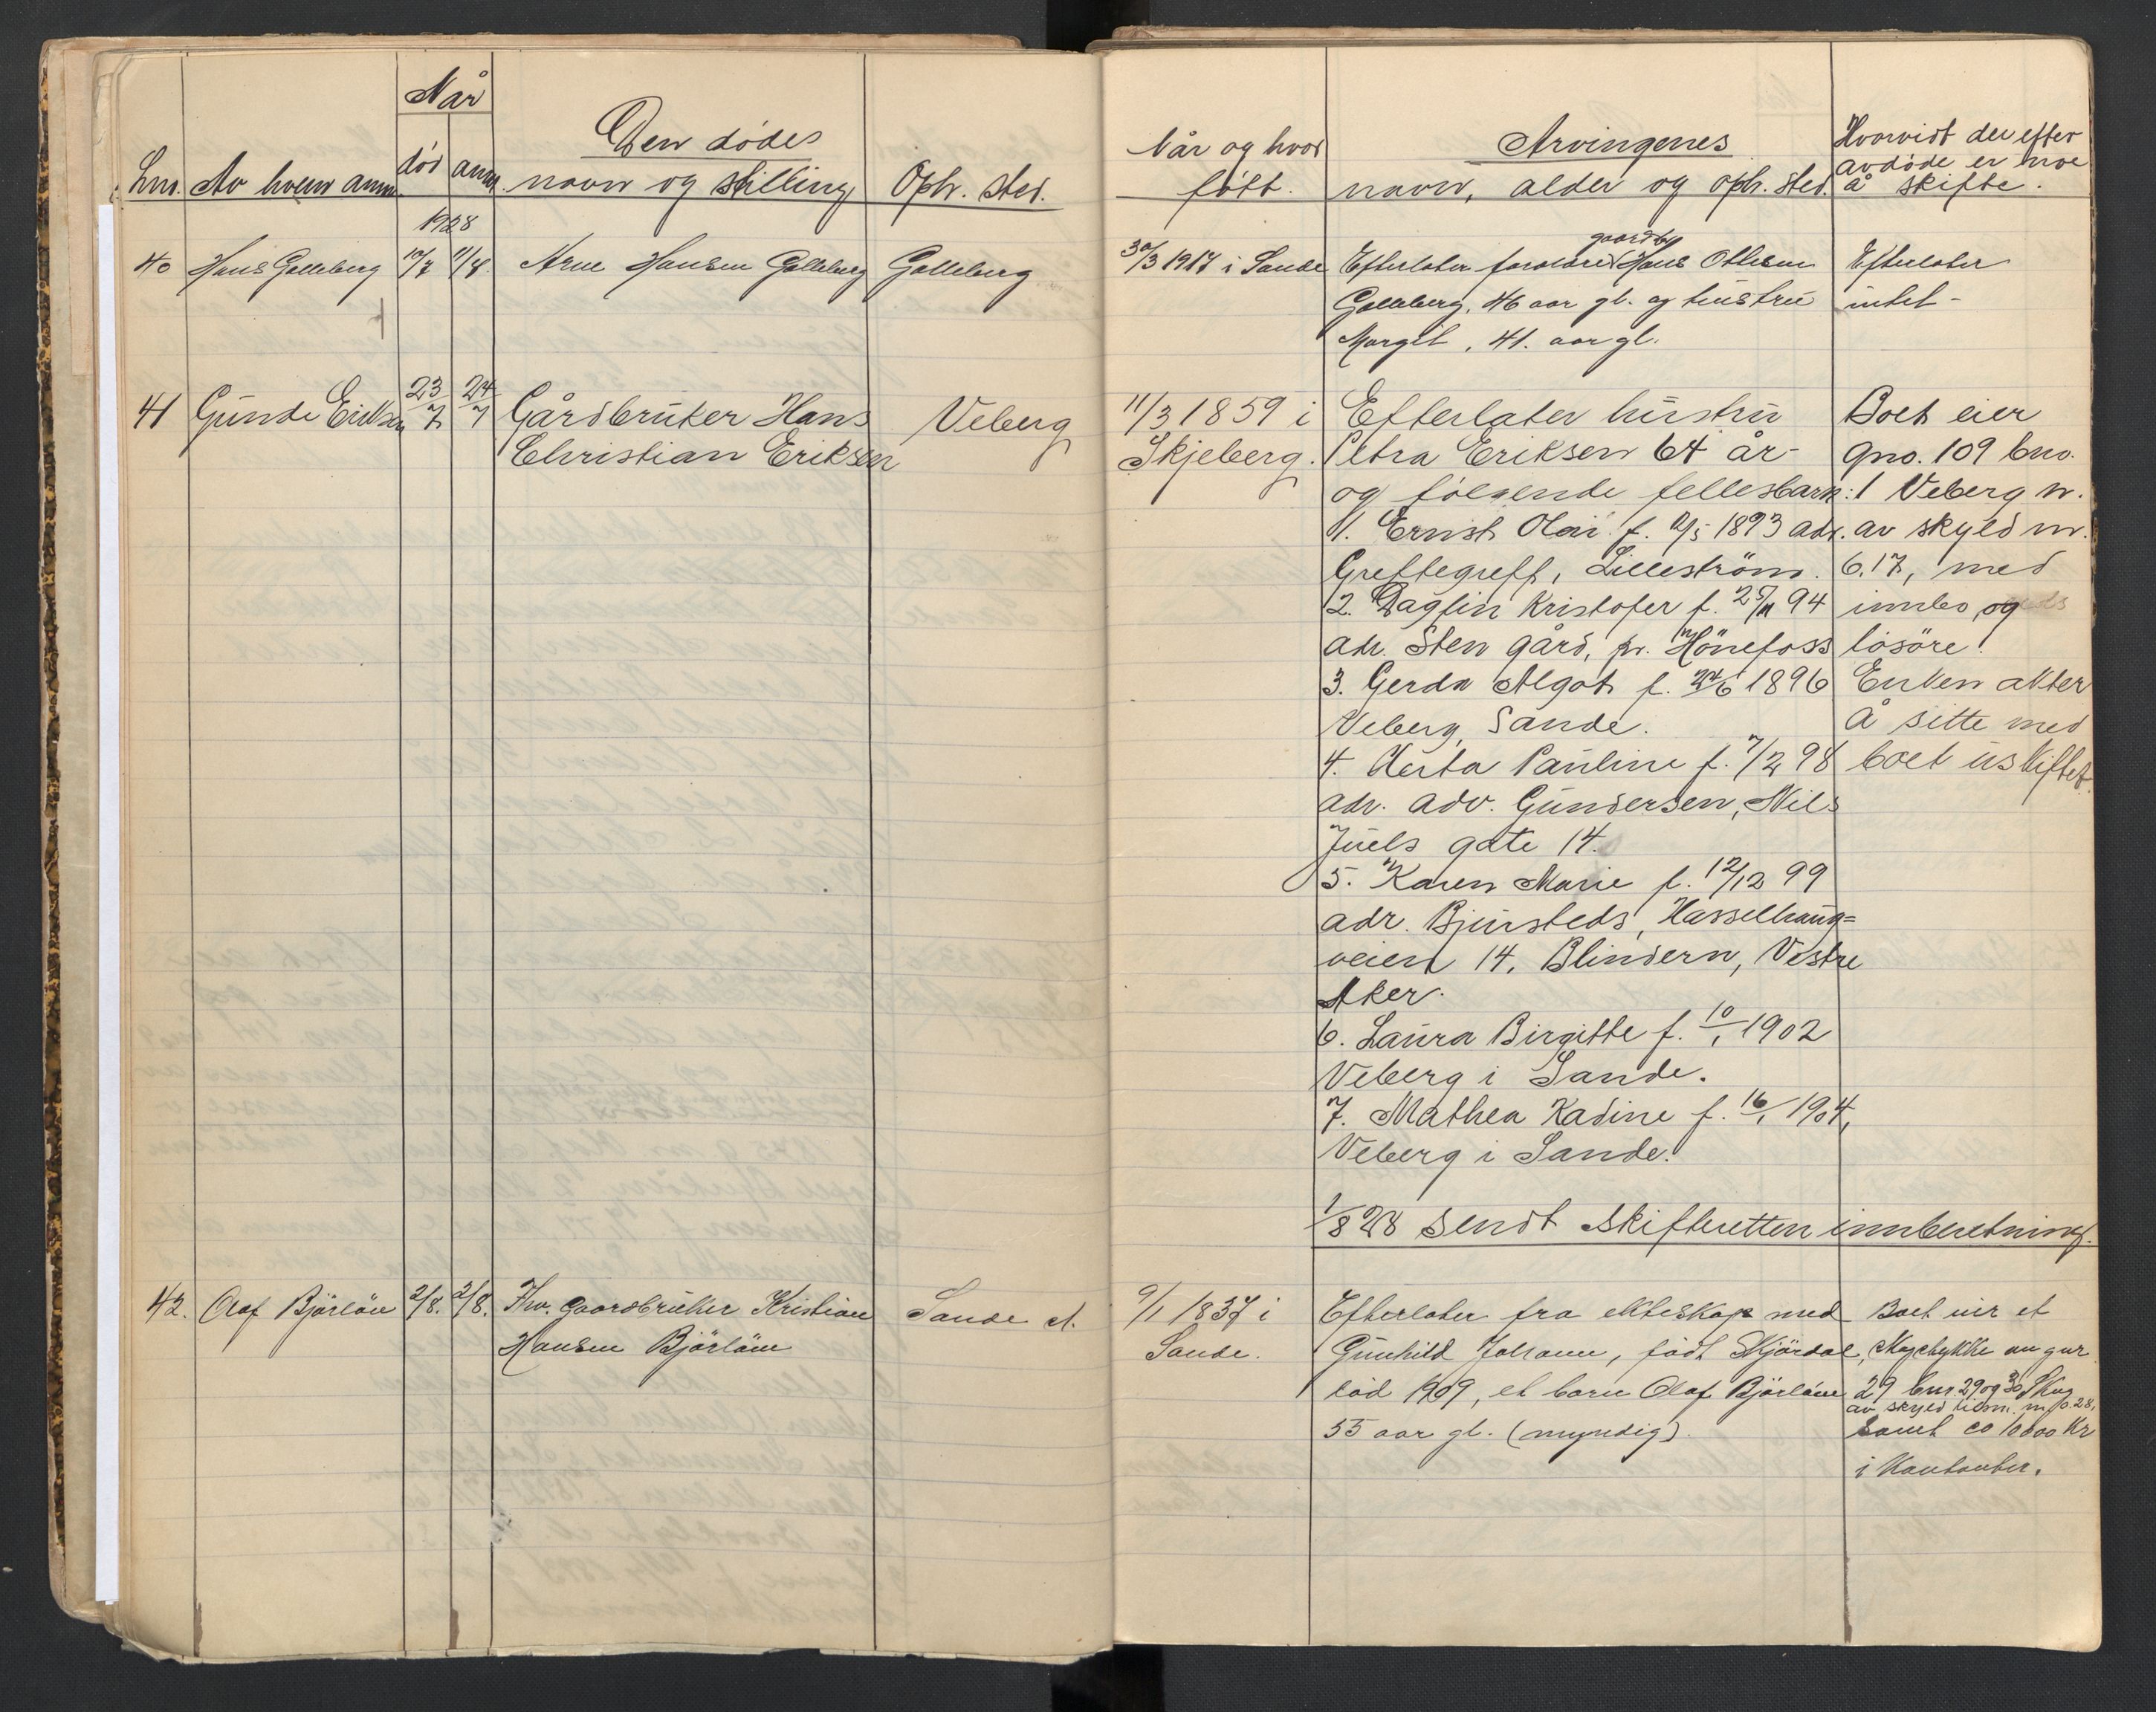 Når
Den dødes
Lnr. Av hvem anm. død anm. navn og stilling Oph. sted.
1928
40 Hans Galleberg 19/7 11/8 Arne Hansen Galleberg Galleberg
41 Gunde Eriksen 23/7 24/7 Gårdbruker Hans Veberg
Christian Eriksen
42. Olaf Björløu 2/8. 2/8. Fhv. gaardbruker Kristian Sande st.
Hansen Björløu
Når og hvor
født.
Arvingenes
navn, alder og oph. sted.
Hvorvidt der efter
avdøde er noe
å skifte.
30/3 1917 i Sande
gaardbr
Efterlater foreldre Hans Ottesen
Galleberg, 46 aar gl. og hustru
Margit, 41. aar gl.
Efterlater
intet -
11/3 1859 i
Skjeberg.
Efterlater hustru
Petra Eriksen 64 år -
og følgende fellesbarn:
1. Ernst Olai f. 1893 adr.
Greftegreff, Lilleström.
2. Dagfin Kristofer f. 25/11 94
adr. Sten gård, pr. Hönefoss
3. Gerda Algot f. 24/6 1896
Veberg, Sande.
4. Herta Pauline f. 7/2 98
adr. adv. Gundersen, Nils
Juels gate 14.
5. Karen Marie f. 12/12 99
adr. Bjursteds, Hasselhaug=
veien 14, Blindern, Vestre
Aker.
6. Laura Birgitte f. 10/1 1902
Veberg i Sande.
7. Mathea Kadine f. 16/1 1904,
Veberg i Sande.
Boet eier
gno. 109 bno.
1 Veberg n.
av skyld m.
6.17, med
innbo og
løsöre.
Enken akter
å sitte med
boet uskiftet.
1/8 28 sendt skifteretten innberetning.
9/1 1837 i
Sande.
Efterlater fra ekteskap med
Gunhild Johanne, født Skjördal,
död 1909, et barn Olaf Björløu
55 aar gl. (myndig).
Boet eier et
skogstykke av gnr.
29 bnr. 29 og 30 Skog
av skyld tilsm. m. 0.28,
samt ca 10000 kr
i kontanter.